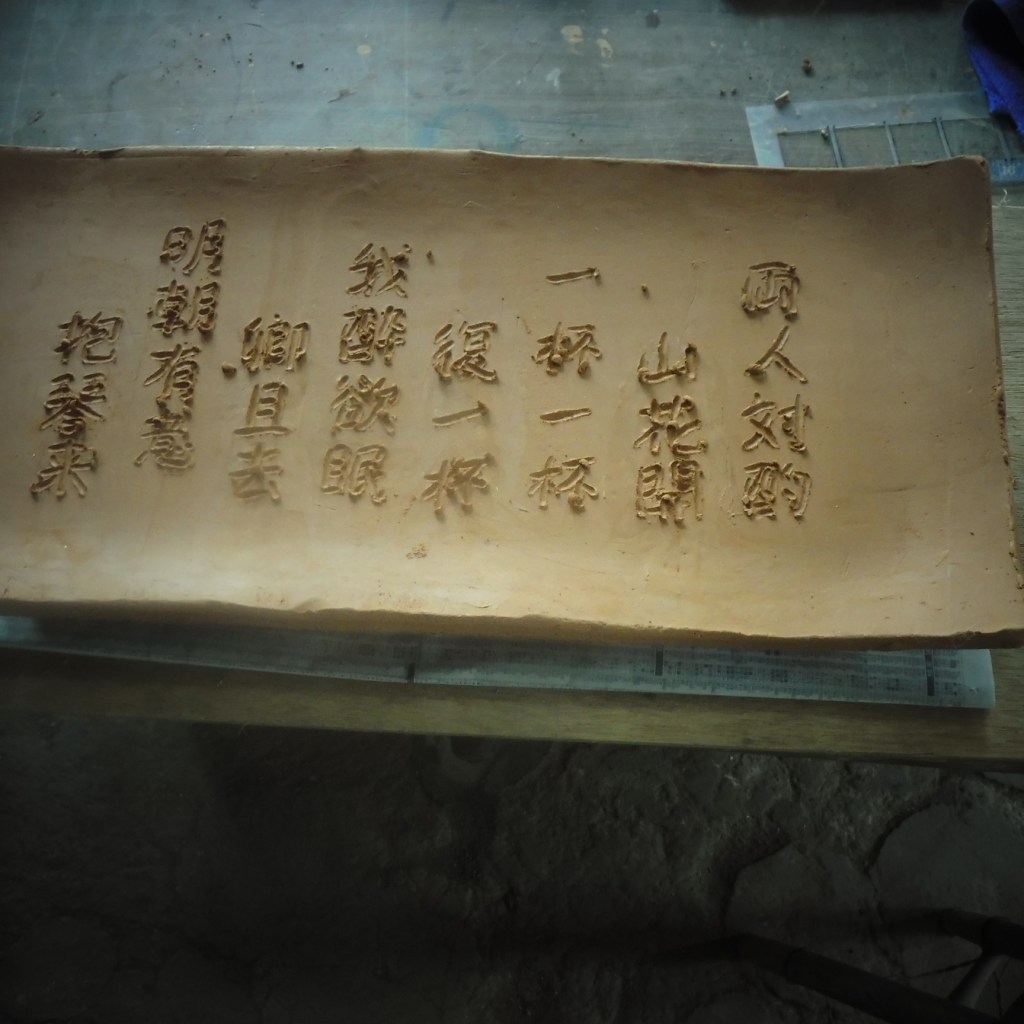 両人対酌
山花開
一杯一杯
復一杯
我酔欲眠
卿且去
明朝有意
抱琴来